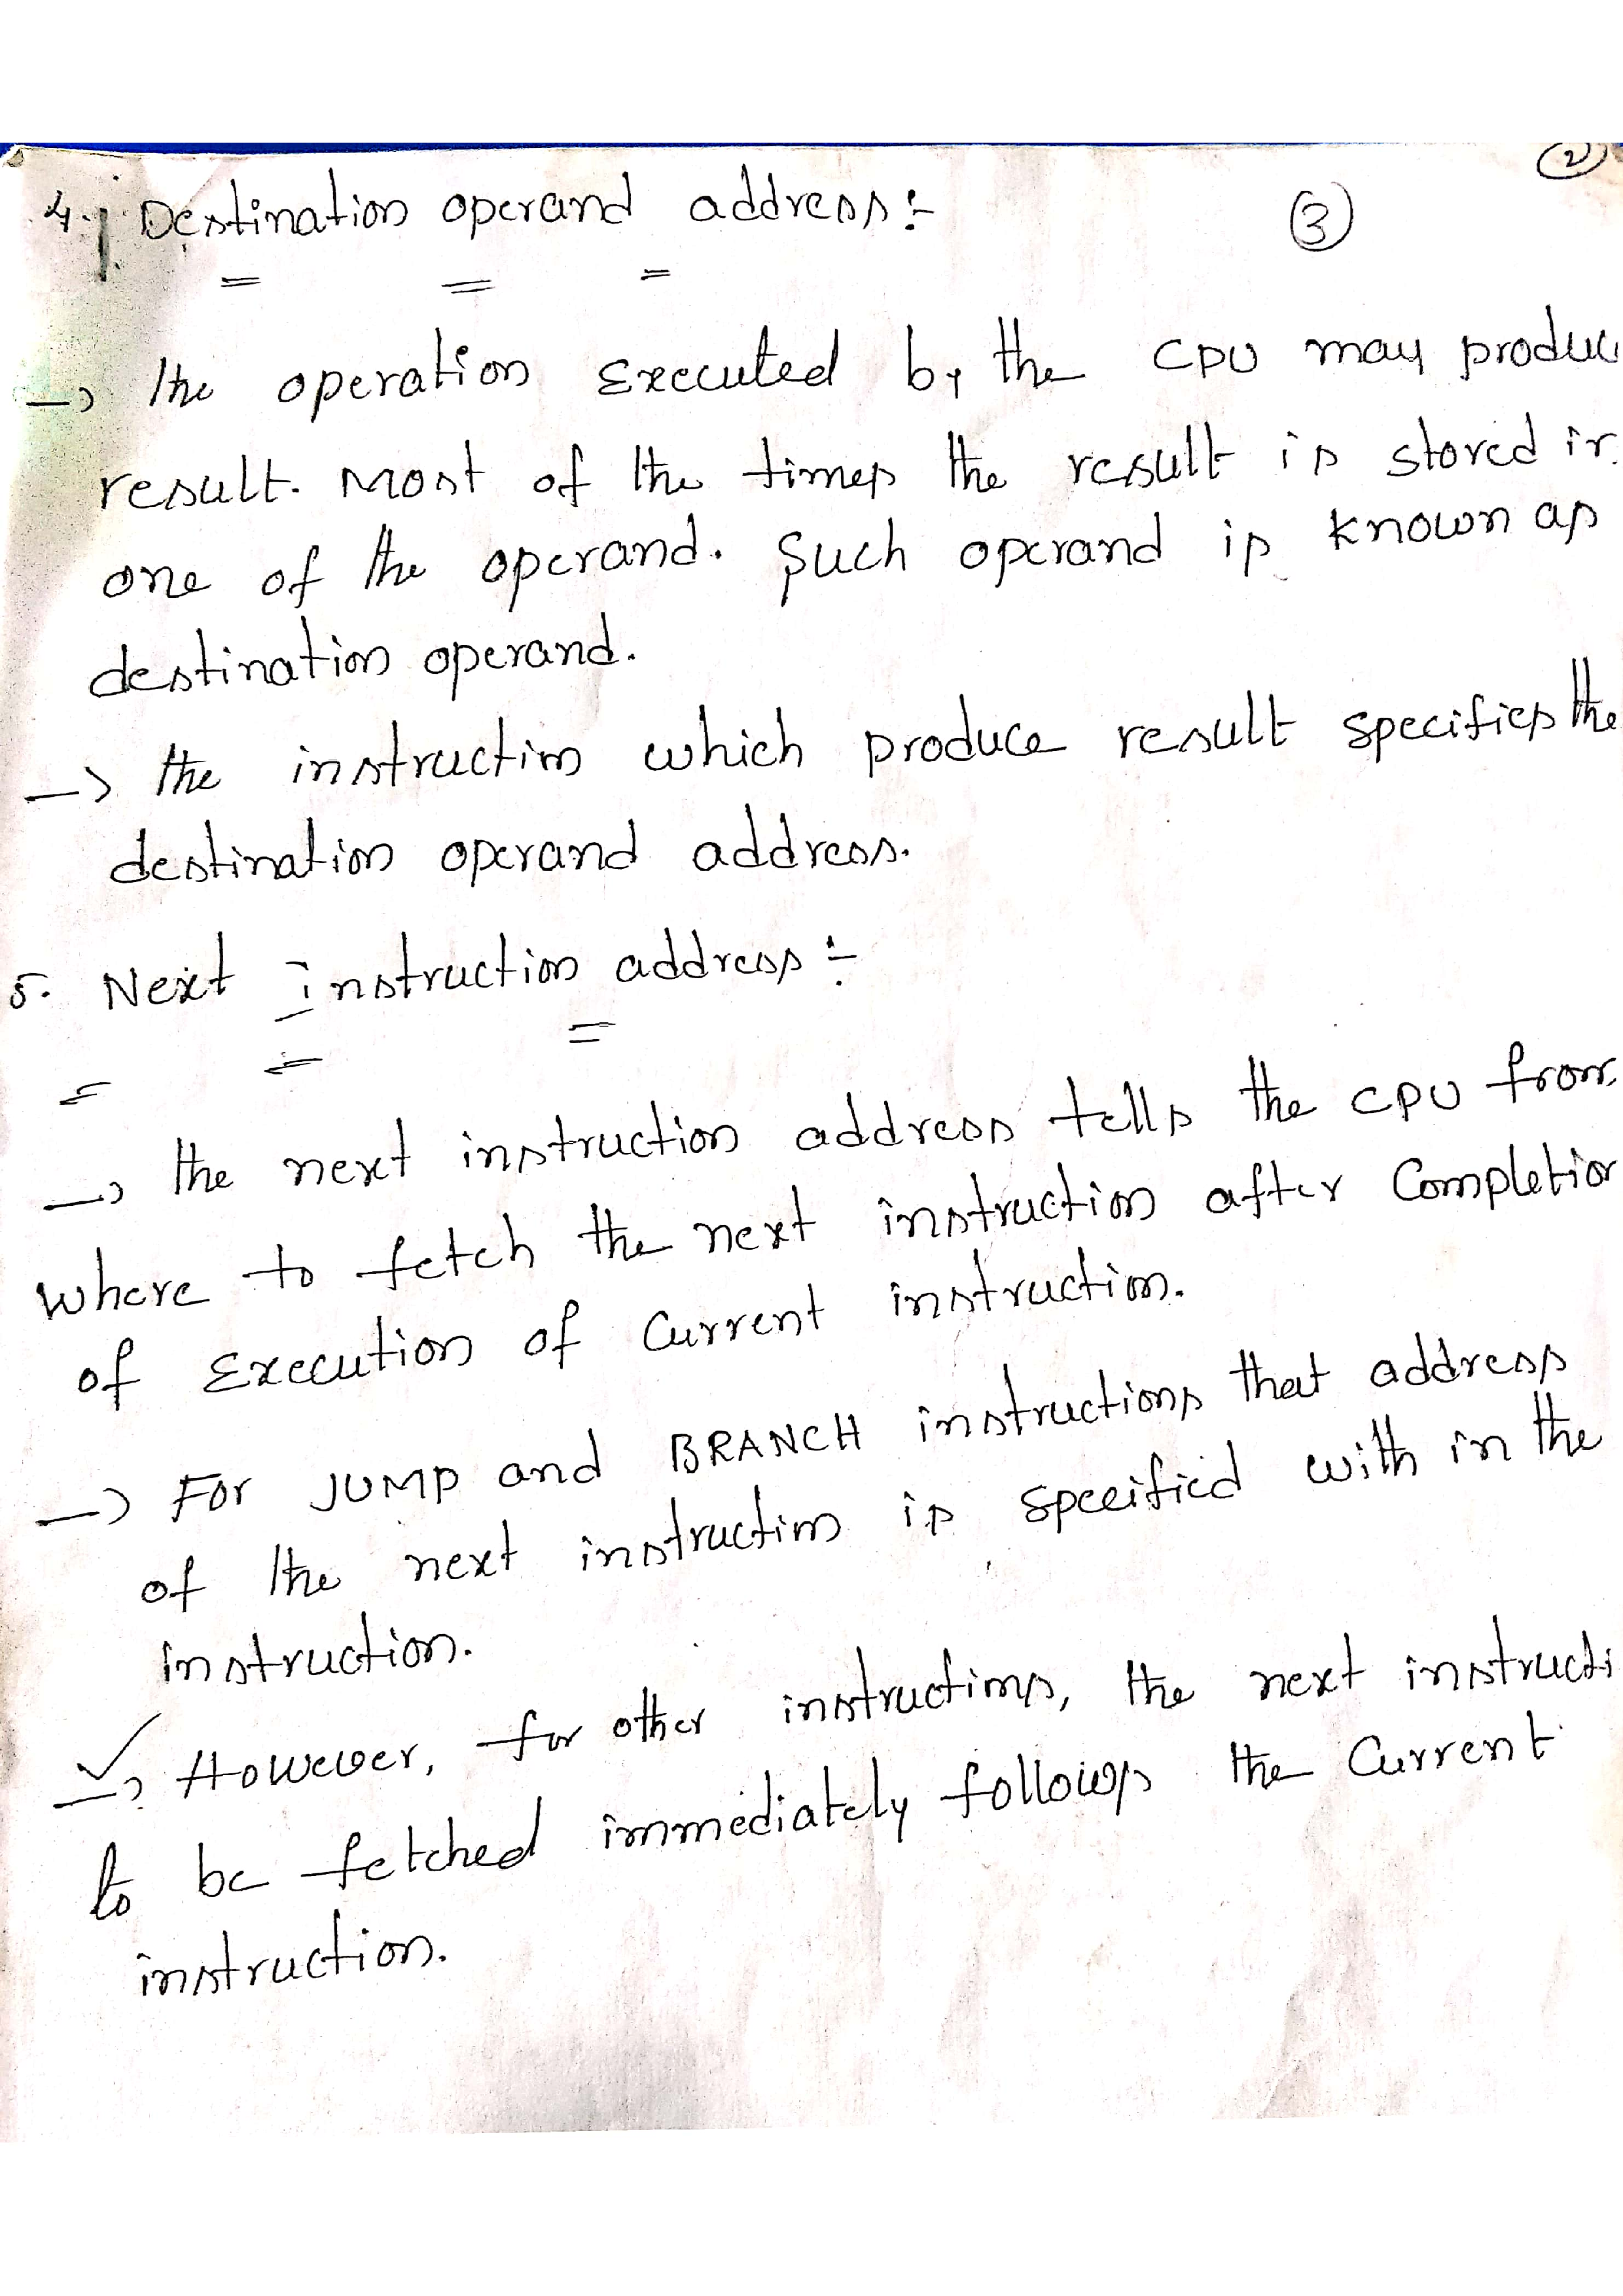 2
4. Destination operand address :-
3
→ The operation Executed by the CPU may produc
result. Most of the times the result is stored in
one of the operand. Such operand is known as
destination operand.
→ the instruction which produce result specifies the
destination operand address.
5. Next instruction address :-
→ the next instruction address tells the CPU from
where to fetch the next instruction after Completion
of Execution of Current instruction.
→ For JUMP and BRANCH instructions that address
of the next instruction is specified with in the
instruction.
→ However, for other instructions, the next instructi
to be fetched immediately follows the Current
instruction.